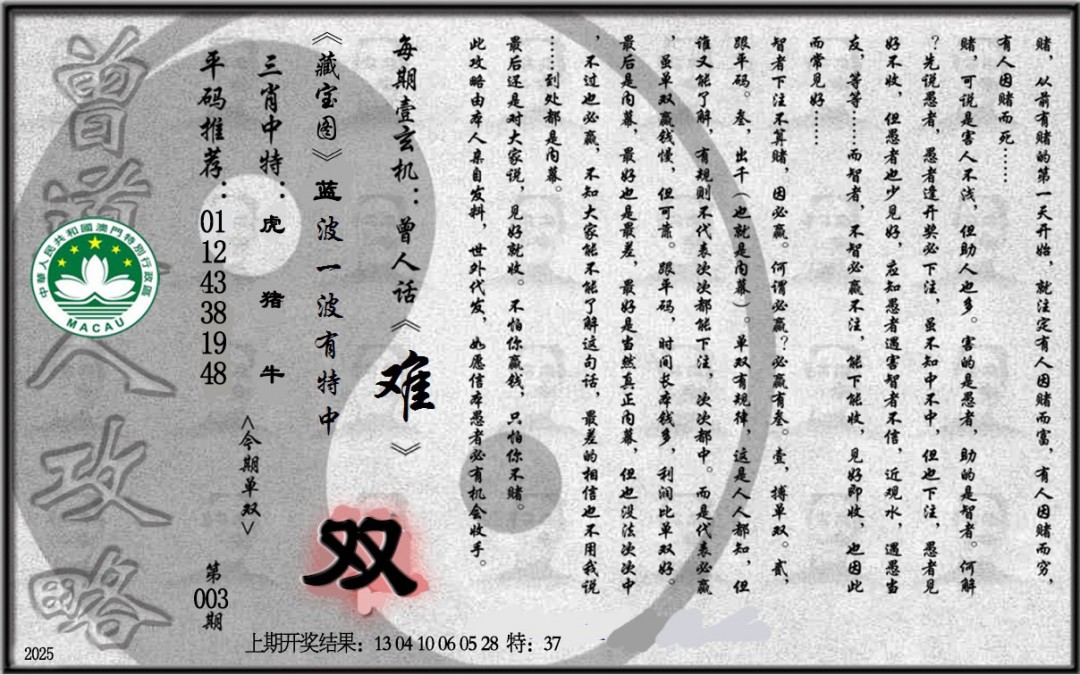 赌，从前有赌的第一天开始，就注定有人因赌而富，有人因赌而穷，
有人因赌而死……
赌，可说是害人不浅，但助人也多。害的是愚者，助的是智者。何解
？先说愚者，愚者逢开奖必下注，虽不知中不中，但也下注，愚者见
好不收，但愚者也少见好，应知愚者遇害智者不信，近观水，遇愚当
友，等等……而智者，不智必赢不注，能下能收，见好即收，也因此
而常见好……
智者下注不算赌，因必赢。何谓必赢？必赢有叁。壹，搏单双。贰，
跟平码。叁，出千（也就是内幕）。单双有规律，这是人人都知，但
谁又能了解，有规则不代表次次都能下注，次次都中。而是代表必赢
，虽单双赢钱慢，但可靠。跟平码，时间长本钱多，利润比单双好。
最后是内幕，最好也是最差，最好是当然真正内幕，但也没法次次中
，不过也必赢，不知大家能不能了解这句话，最差的相信也不用我说
……到处都是内幕。
最后还是对大家说，见好就收。不怕你赢钱，只怕你不赌。
此攻略由本人亲自发料，世外代发，如愿信本愚者必有机会收手。
每期壹玄机：曾人话《难》
《藏宝图》蓝波一波有特中
双
三肖中特：虎猪牛
<今期单双>
平码推荐：01 12 43 38 19 48
第003期
曾道人攻略
中華人民共和國澳門特別行政區
MACAU
上期开奖结果：13 04 10 06 05 28 特：37
2025